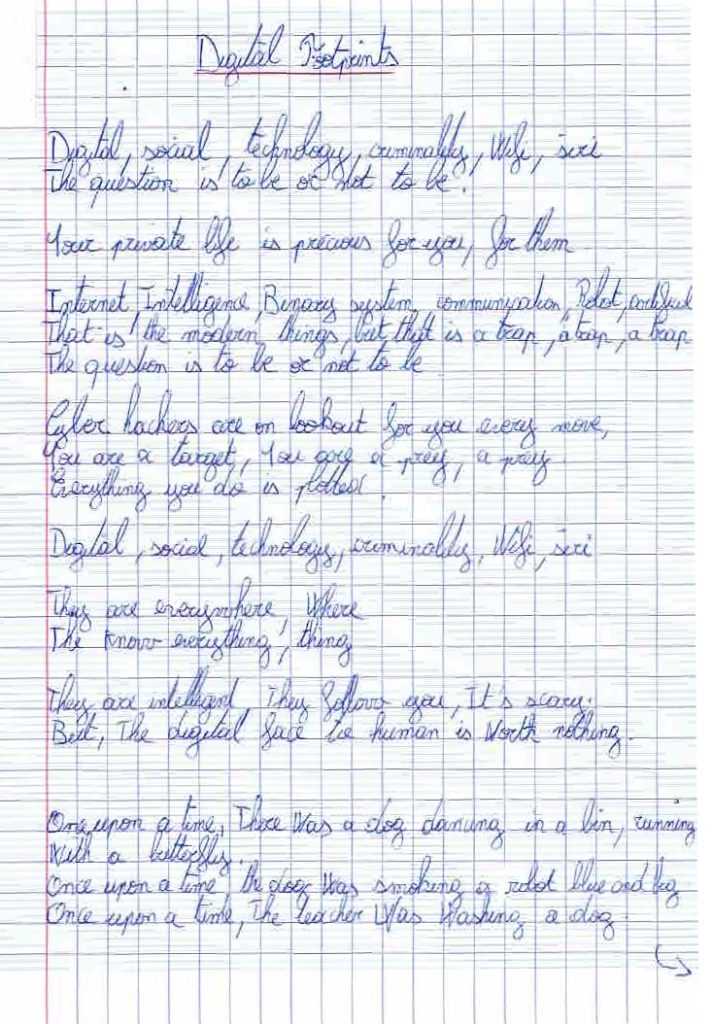 Digital Footprints
Digital, social, technology, criminality, Wifi, siri
The question is to be or not to be.
Your private life is precious for you, for them
Internet, Intelligence, Binary system, communication, Robot, artificial
That is the modern things, but that is a trap, a trap, a trap
The question is to be or not to be
Cyber hackers are on lookout for you every move,
You are a target, You are a prey, a prey.
Everything you do is plotted.
Digital, social, technology, criminality, Wifi, siri
They are everywhere, Where
The know everything, thing
They are intelligent, They follow you, It's scary.
But, The digital face human is Worth nothing.
Once upon a time, There Was a dog dancing in a bin, running
With a butterfly.
Once upon a time, the dog Was smoking a robot blue and big
Once upon a time, The teacher Was Washing a dog.